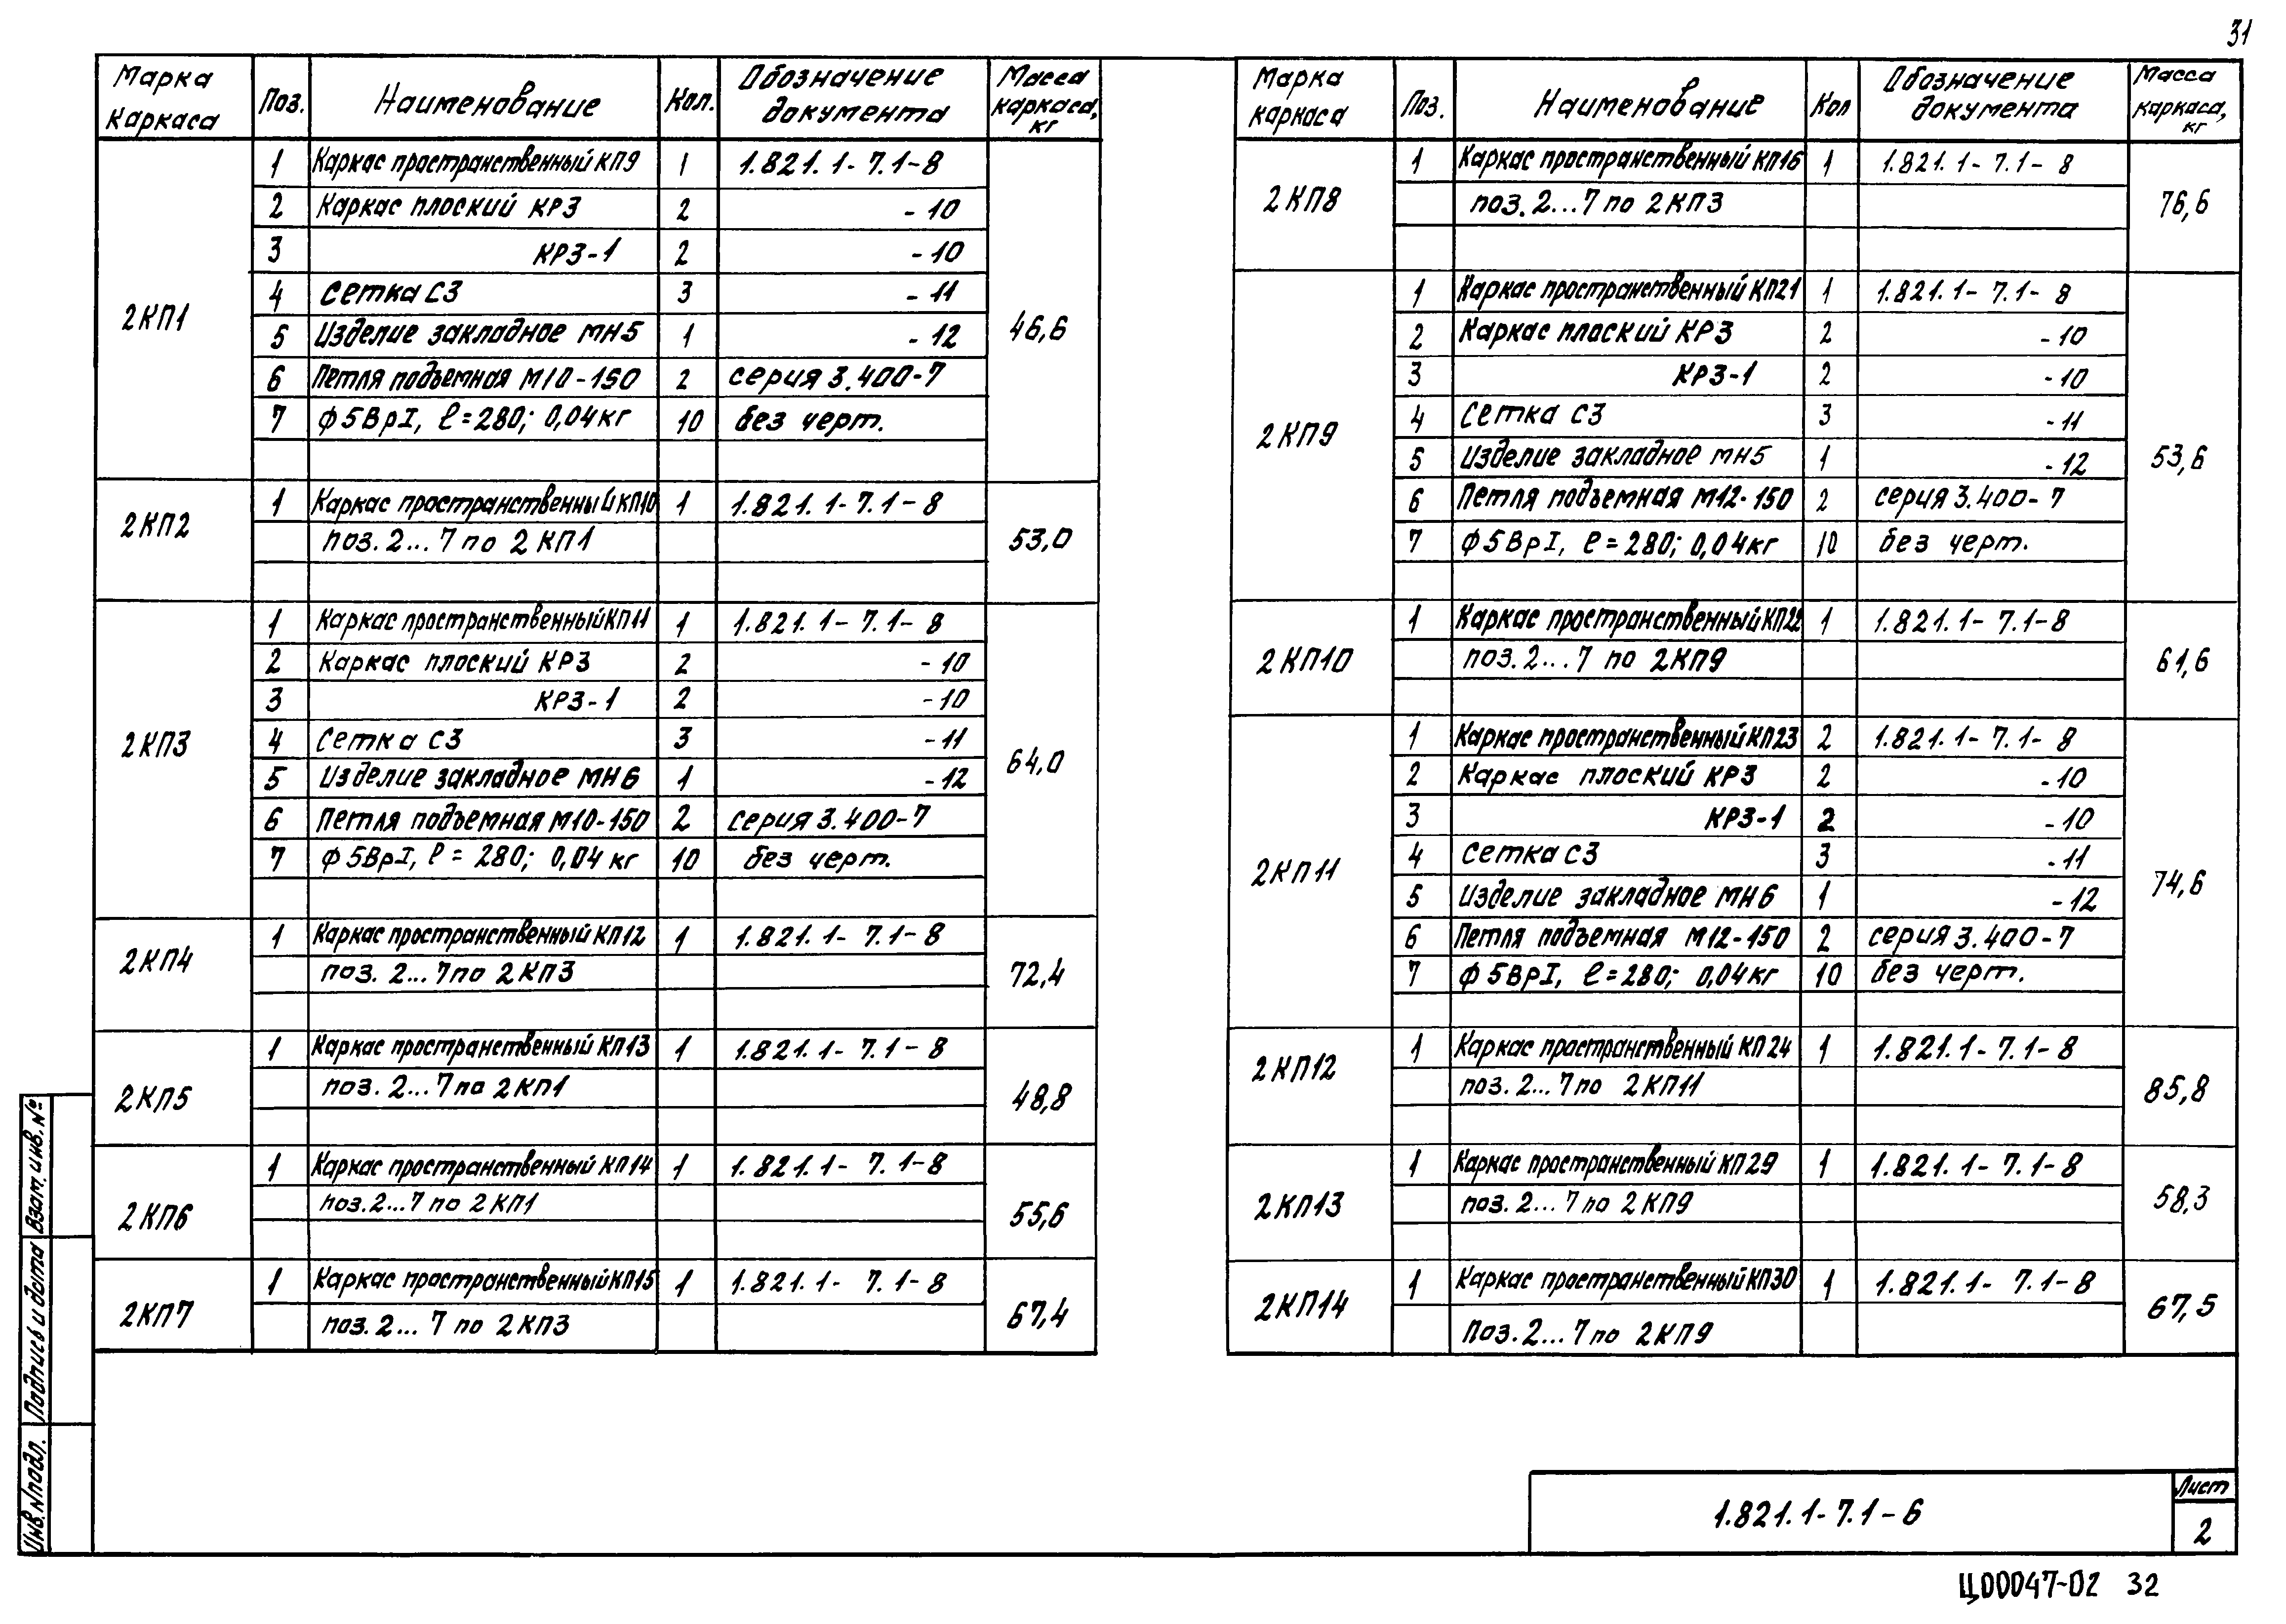 31
Марка каркаса Поз. Наименование Кол. Обозначение документа Масса каркаса, кг
2КП1 46,6
1 Каркас пространственный КП9 1 1.821.1-7.1-8
2 Каркас плоский КР3 2 -10
3 КР3-1 2 -10
4 Сетка С3 3 -11
5 Изделие закладное МН5 1 -12
6 Петля подъемная М10-150 2 серия 3.400-7
7 ф5ВрI, ℓ=280; 0,04кг 10 без черт.
2КП2 53,0
1 Каркас пространственный КП10 1 1.821.1-7.1-8
поз. 2...7 по 2КП1
2КП3 64,0
1 Каркас пространственный КП11 1 1.821.1-7.1-8
2 Каркас плоский КР3 2 -10
3 КР3-1 2 -10
4 Сетка С3 3 -11
5 Изделие закладное МН6 1 -12
6 Петля подъемная М10-150 2 серия 3.400-7
7 ф5ВрI, ℓ=280; 0,04кг 10 без черт.
2КП4 72,4
1 Каркас пространственный КП12 1 1.821.1-7.1-8
поз. 2...7 по 2КП3
2КП5 48,8
1 Каркас пространственный КП13 1 1.821.1-7.1-8
поз. 2...7 по 2КП1
2КП6 55,6
1 Каркас пространственный КП14 1 1.821.1-7.1-8
поз. 2...7 по 2КП1
2КП7 67,4
1 Каркас пространственный КП15 1 1.821.1-7.1-8
поз. 2...7 по 2КП3
Марка каркаса Поз. Наименование Кол Обозначение документа Масса каркаса, кг
2КП8 76,6
1 Каркас пространственный КП16 1 1.821.1-7.1-8
поз. 2...7 по 2КП3
2КП9 53,6
1 Каркас пространственный КП21 1 1.821.1-7.1-8
2 Каркас плоский КР3 2 -10
3 КР3-1 2 -10
4 Сетка С3 3 -11
5 Изделие закладное МН5 1 -12
6 Петля подъемная М12-150 2 серия 3.400-7
7 ф5ВрI, ℓ=280; 0,04кг 10 без черт.
2КП10 61,6
1 Каркас пространственный КП22 1 1.821.1-7.1-8
поз. 2...7 по 2КП9
2КП11 74,6
1 Каркас пространственный КП23 2 1.821.1-7.1-8
2 Каркас плоский КР3 2 -10
3 КР3-1 2 -10
4 Сетка С3 3 -11
5 Изделие закладное МН6 1 -12
6 Петля подъемная М12-150 2 серия 3.400-7
7 ф5ВрI, ℓ=280; 0,04кг 10 без черт.
2КП12 85,8
1 Каркас пространственный КП24 1 1.821.1-7.1-8
поз. 2...7 по 2КП11
2КП13 58,3
1 Каркас пространственный КП29 1 1.821.1-7.1-8
поз. 2...7 по 2КП9
2КП14 67,5
1 Каркас пространственный КП30 1 1.821.1-7.1-8
Поз. 2...7 по 2КП9
Инв. N подл. Подпись и дата Взам. инв. №
1.821.1-7.1-6
Лист
2
Ц00047-02 32